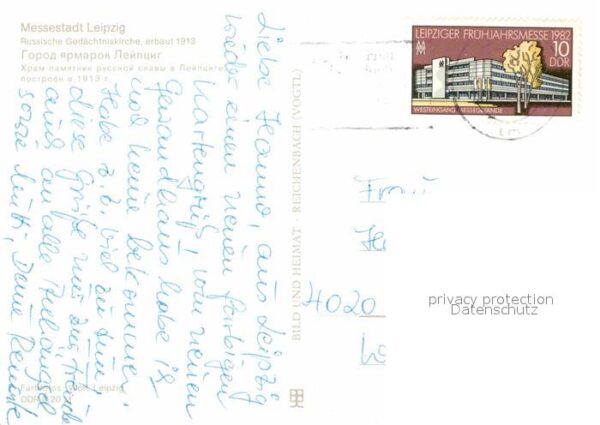 Messestadt Leipzig
Russische Gedächtniskirche, erbaut 1913
Город ярмарок Лейпциг
Храм памятник русской славы в Лейпциге
построен в 1913 г.
Liebe Hanna, aus Leipzig
wieder einen neuen farbigen
Kartengruß! Vom neuen
Gewandhaus habe ich
noch keine bekommen.
Habe z.Z. viel zu tun,
diese Grüße nur zur
aus an alle
Mutti, Deine Renate
Farbfotos: Leipzig
BILD UND HEIMAT · REICHENBACH (VOGTL)
LEIPZIGER FRÜHJAHRSMESSE 1982
MM
10
DDR
WESTEINGANG MESSEGELÄNDE
Frau
4020
privacy protection
Datenschutz